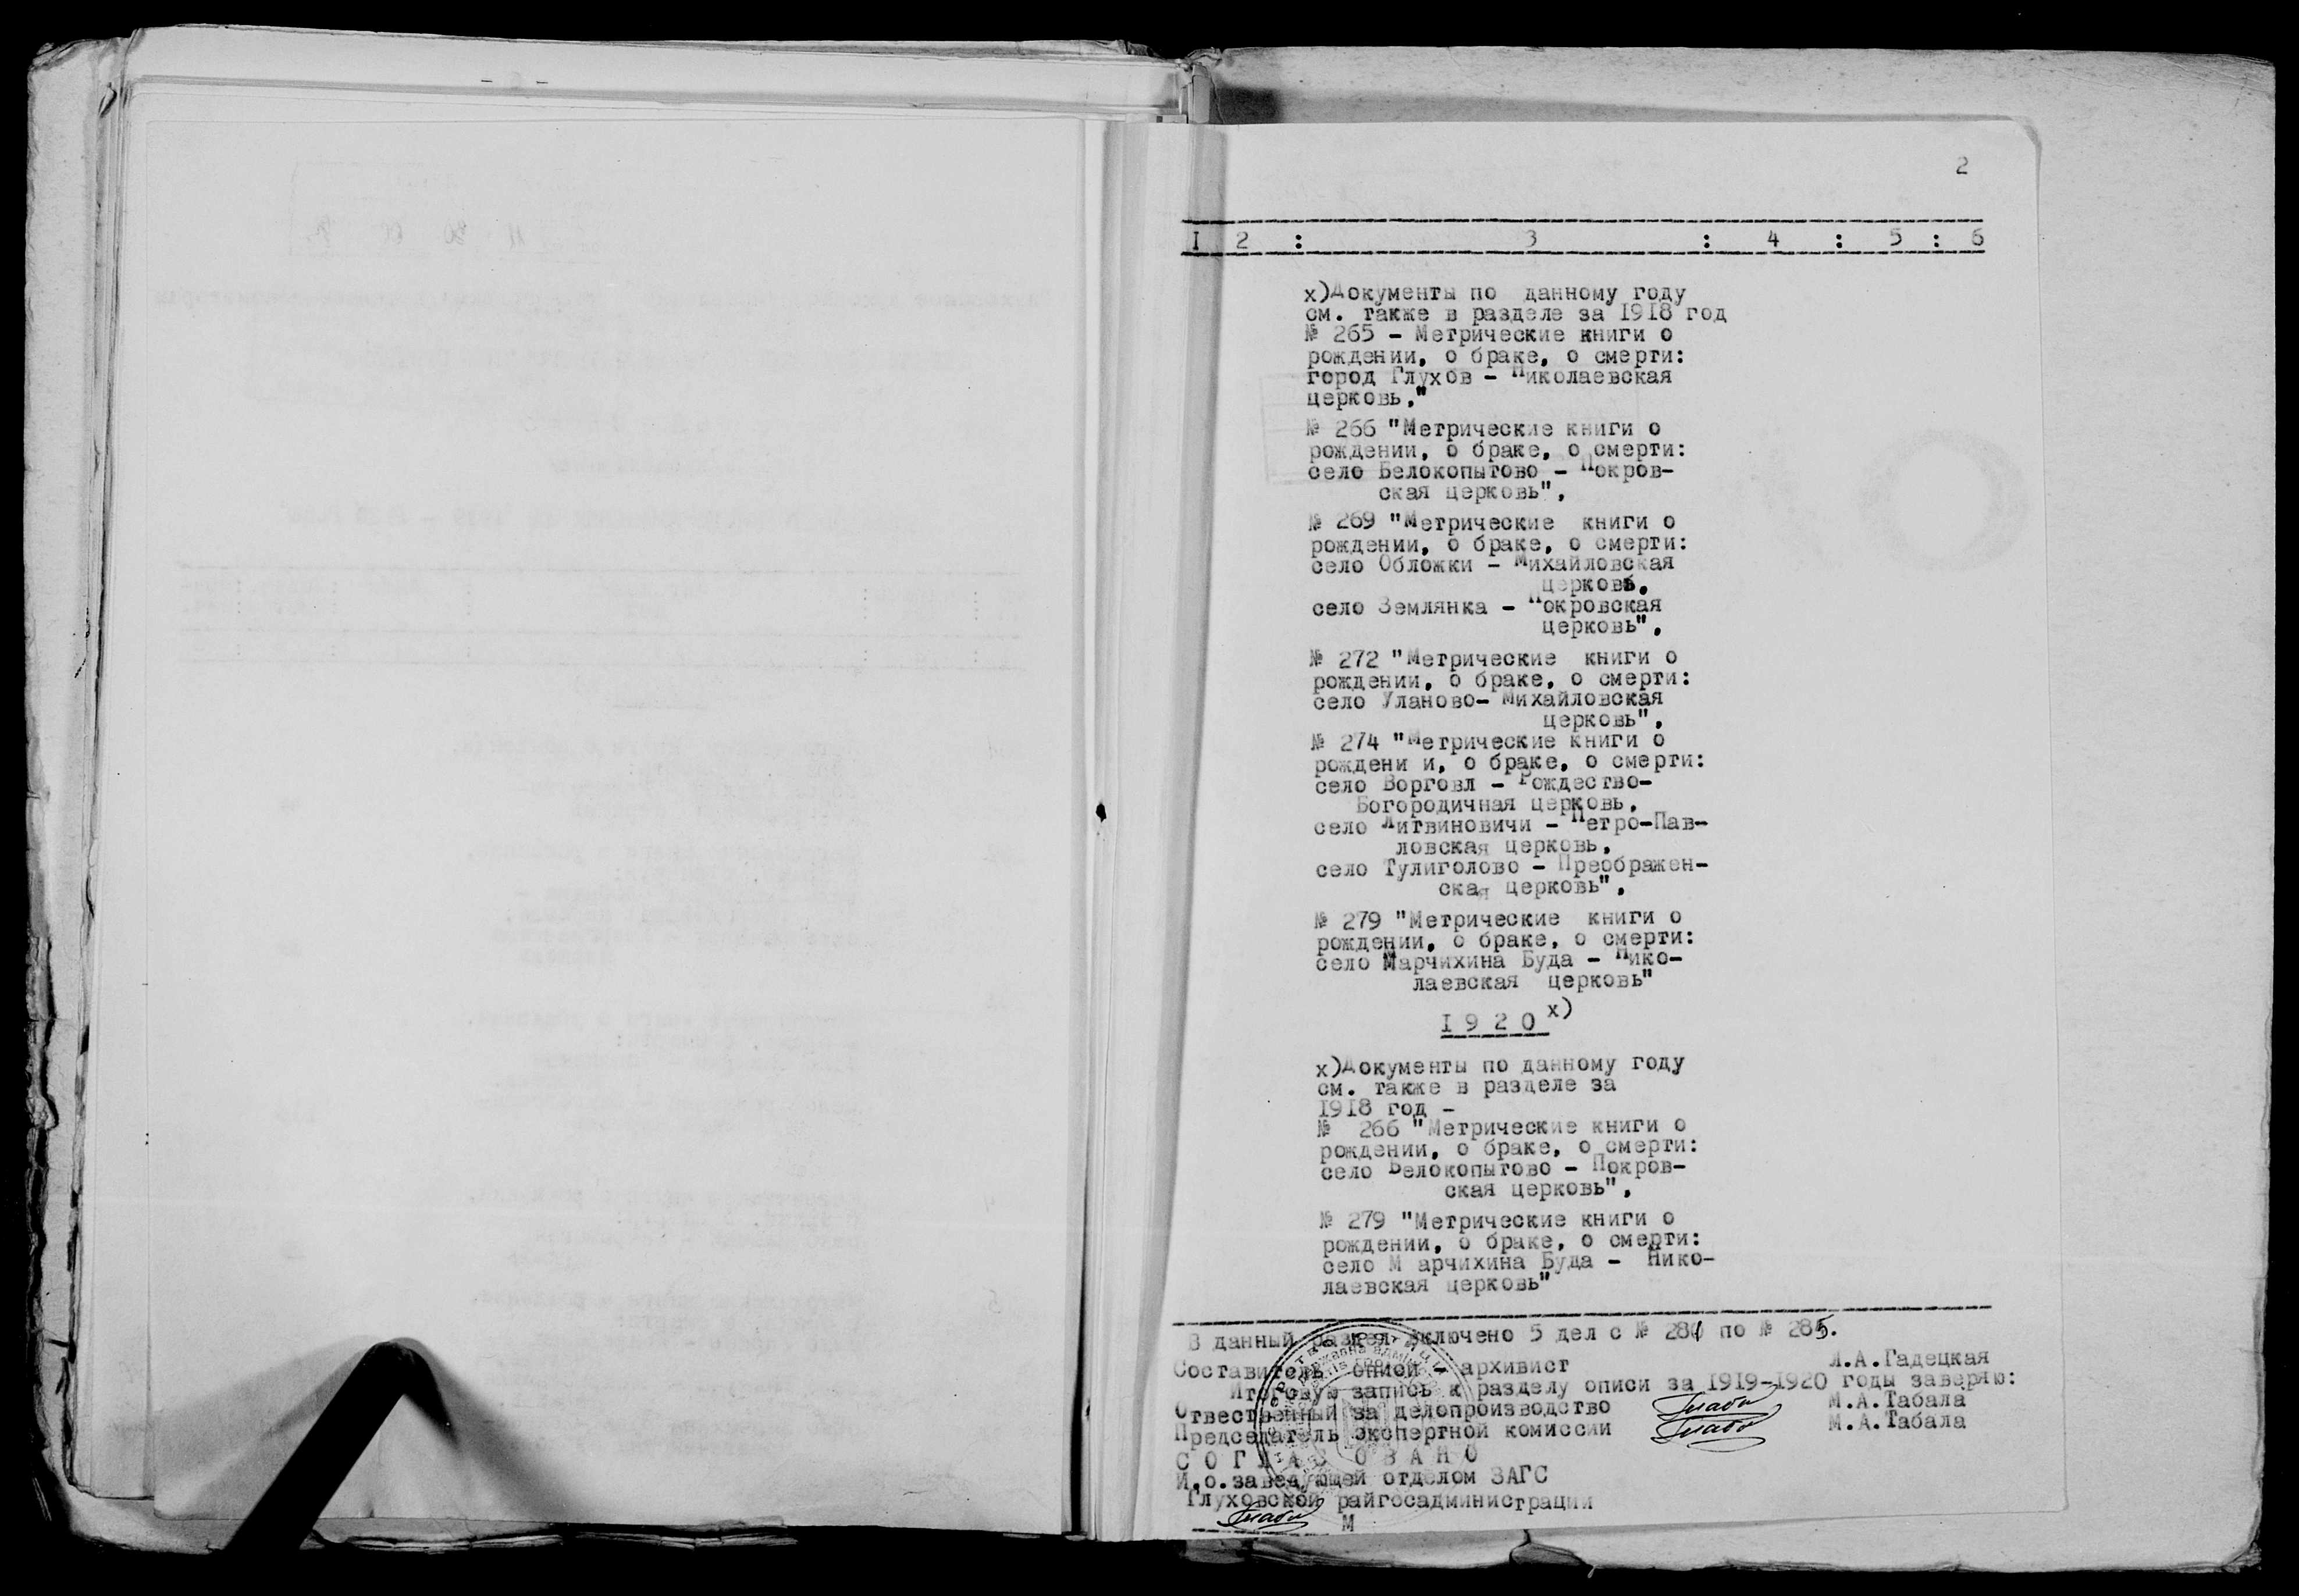 2
I 2 : 3 : 4 : 5 : 6
х)Документы по данному году
см. также в разделе за 1918 год
№ 265 - Метрические книги о
рождении, о браке, о смерти:
город Глухов - Николаевская
церковь,"
№ 266 "Метрические книги о
рождении, о браке, о смерти:
село Белокопытово - Покров-
ская церковь",
№ 269 "Метрические книги о
рождении, о браке, о смерти:
село Обложки - Михайловская
церковь,
село Землянка - Покровская
церковь",
№ 272 "Метрические книги о
рождении, о браке, о смерти:
село Уланово- Михайловская
церковь",
№ 274 "Метрические книги о
рождени и, о браке, о смерти:
село Ворговл - Рождество-
Богородичная церковь,
село Литвиновичи - Петро-Пав-
ловская церковь,
село Тулиголово - Преображен-
ская церковь",
№ 279 "Метрические книги о
рождении, о браке, о смерти:
село Марчихина Буда - Нико-
лаевская церковь"
I 9 2 0 х)
х)Документы по данному году
см. также в разделе за
1918 год -
№ 266 "Метрические книги о
рождении, о браке, о смерти:
село Белокопытово - Покров-
ская церковь",
№ 279 "Метрические книги о
рождении, о браке, о смерти:
село М арчихина Буда - Нико-
лаевская церковь"
В данный раздел включено 5 дел с № 281 по № 285.
Составитель описи - архивист Л.А.Гадецкая
Итоговую запись к разделу описи за 1919-1920 годы заверяю:
Отвественный за делопроизводство М.А.Табала
Председатель экспертной комиссии М.А.Табала
С О Г Л А С О В А Н О
И.о.заведующей отделом ЗАГС
Глуховской райгосадминистрации
М